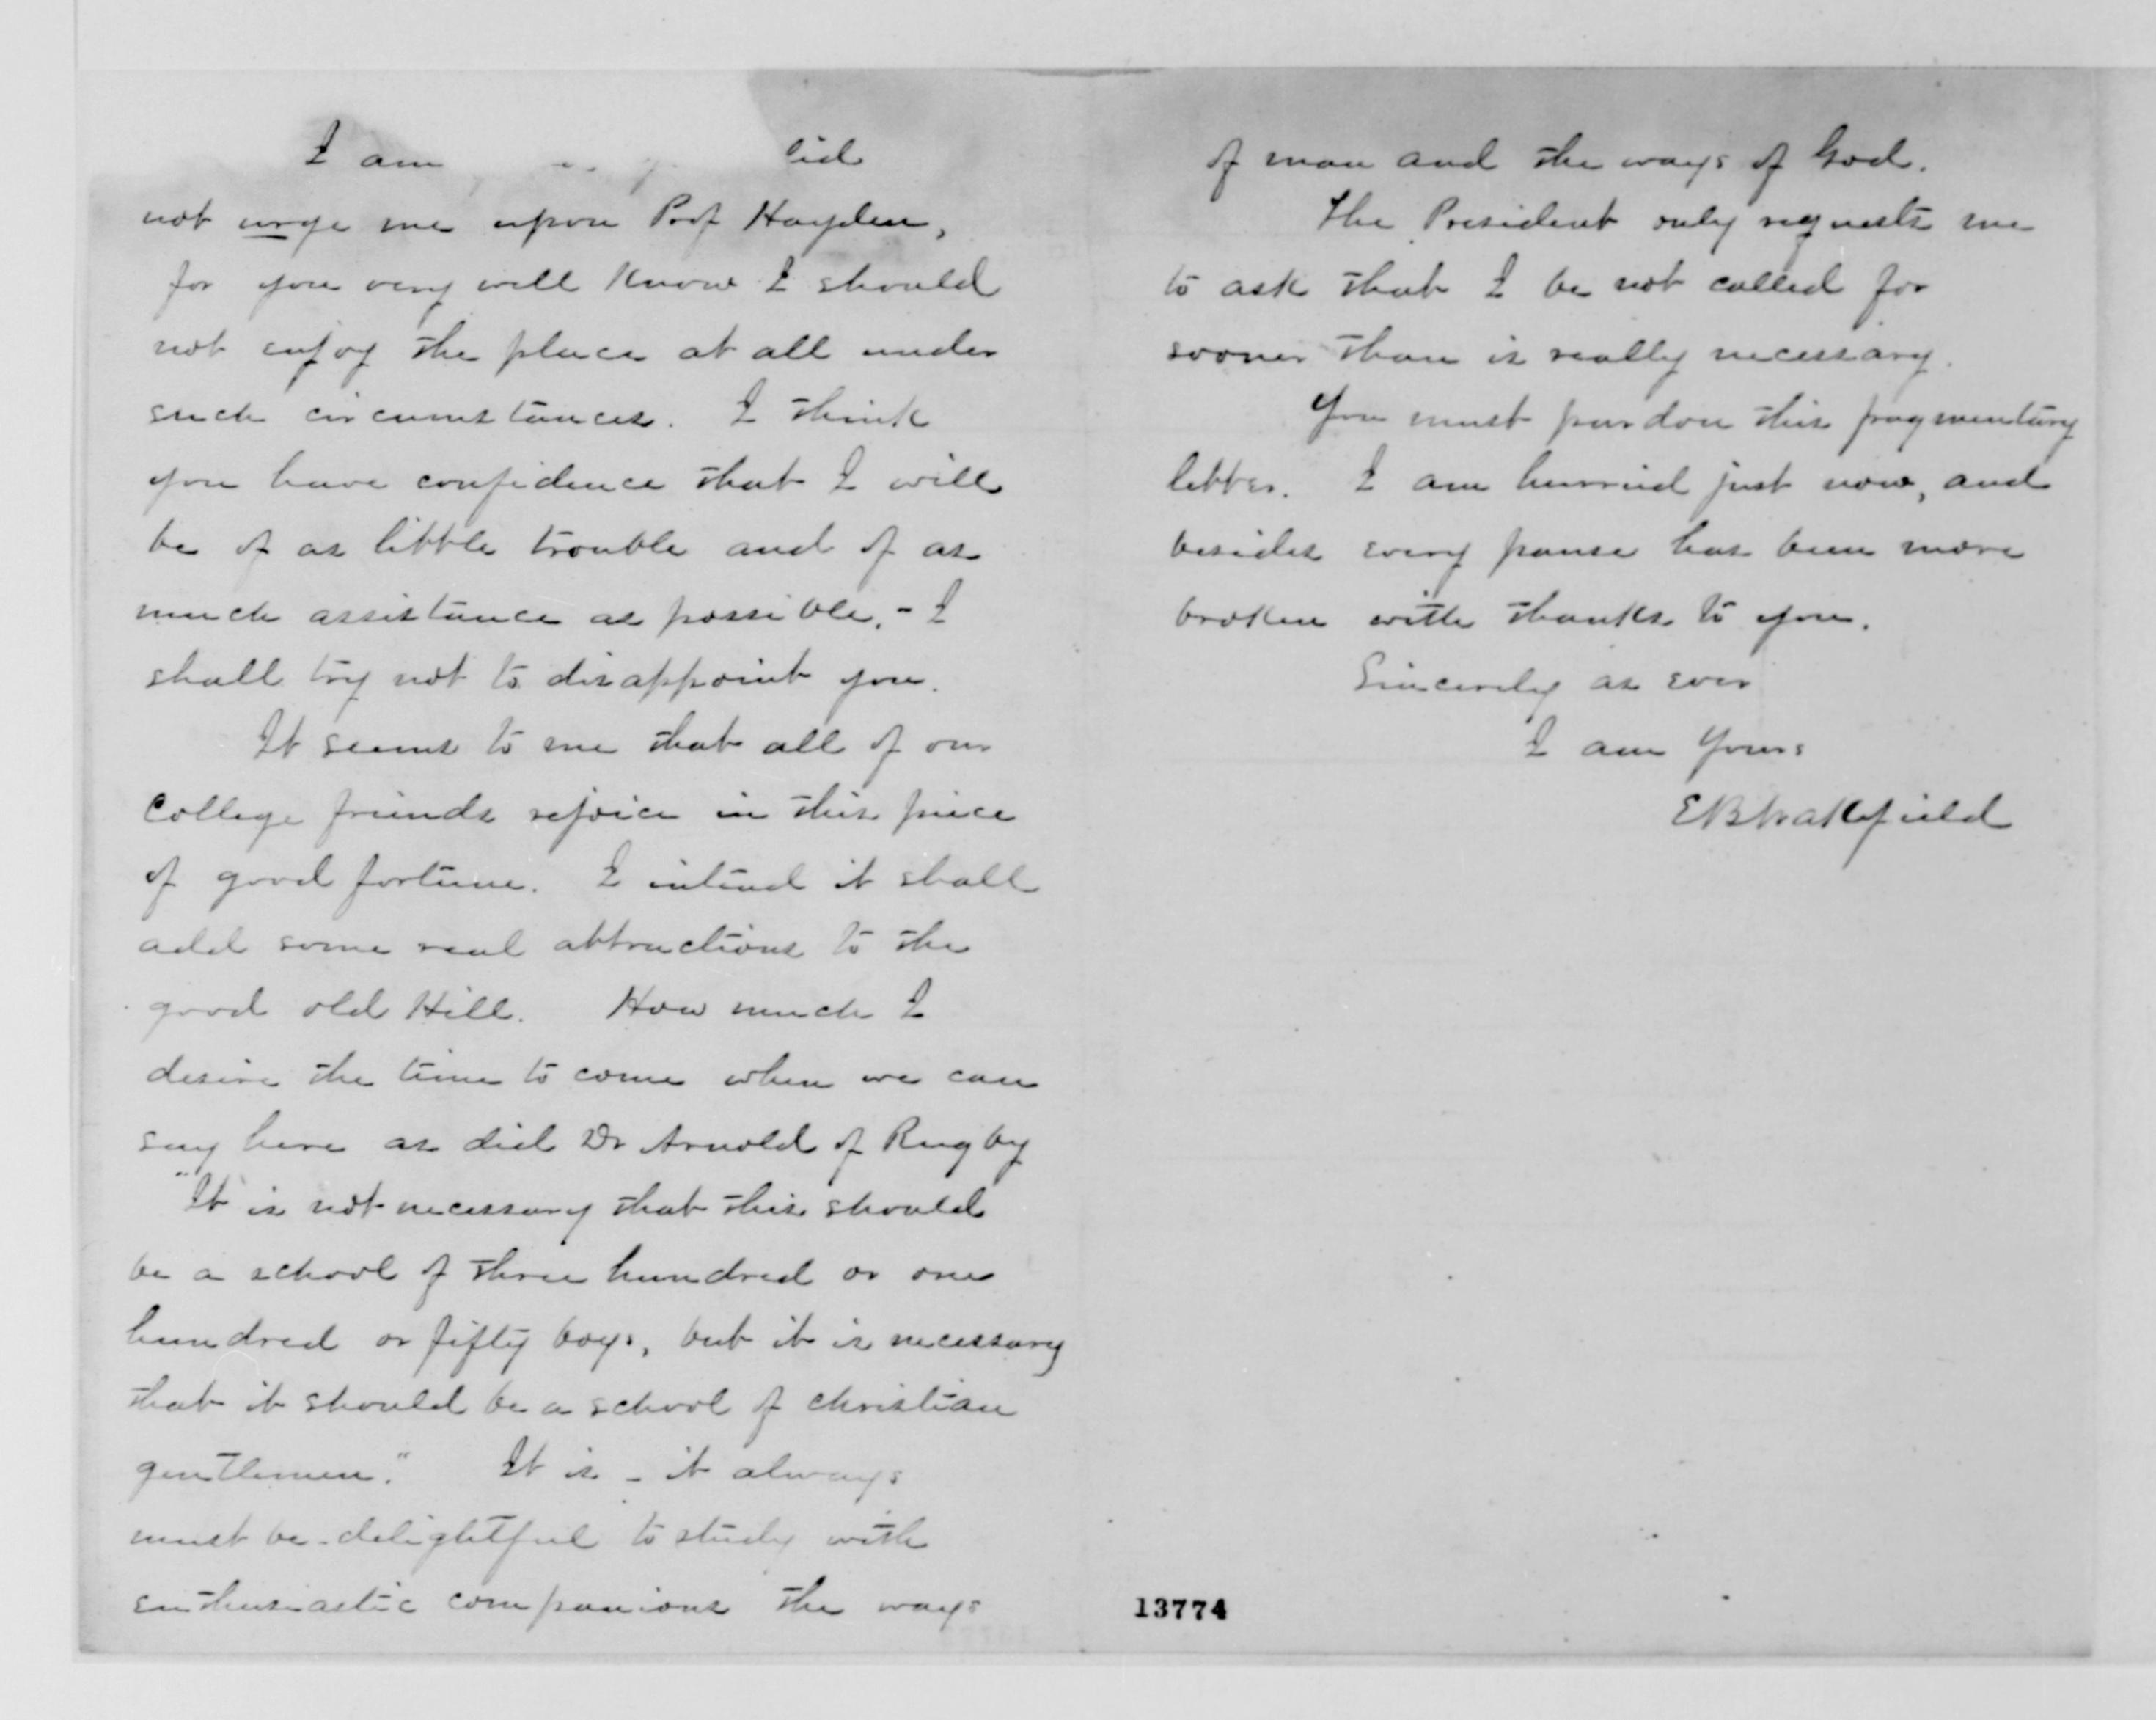 I am
not urge me upon Prof Hayden,
for you very well know I should
not enjoy the place at all under
such circumstances. I think
you have confidence that I will
be of as little trouble and of as
much assistance as possible, - I
shall try not to disappoint you.
It seems to me that all of our
College friends rejoice in this piece
of good fortune. I intend it shall
add some real attractions to the
good old Hill. How much I
desire the time to come when we can
say here as did Dr Arnold of Rugby
"It is not necessary that this should
be a school of three hundred or one
hundred or fifty boys, but it is necessary
that it should be a school of christian
gentlemen." It is - it always
must be - delightful to study with
enthusiastic companions the ways
of man and the ways of God.
The President only requests me
to ask that I be not called for
sooner than is really necessary.
You must pardon this fragmentary
letter. I am hurried just now, and
besides every pause has been more
broken with thanks to you.
Sincerely as ever
I am Yours
E B Wakefield
13774